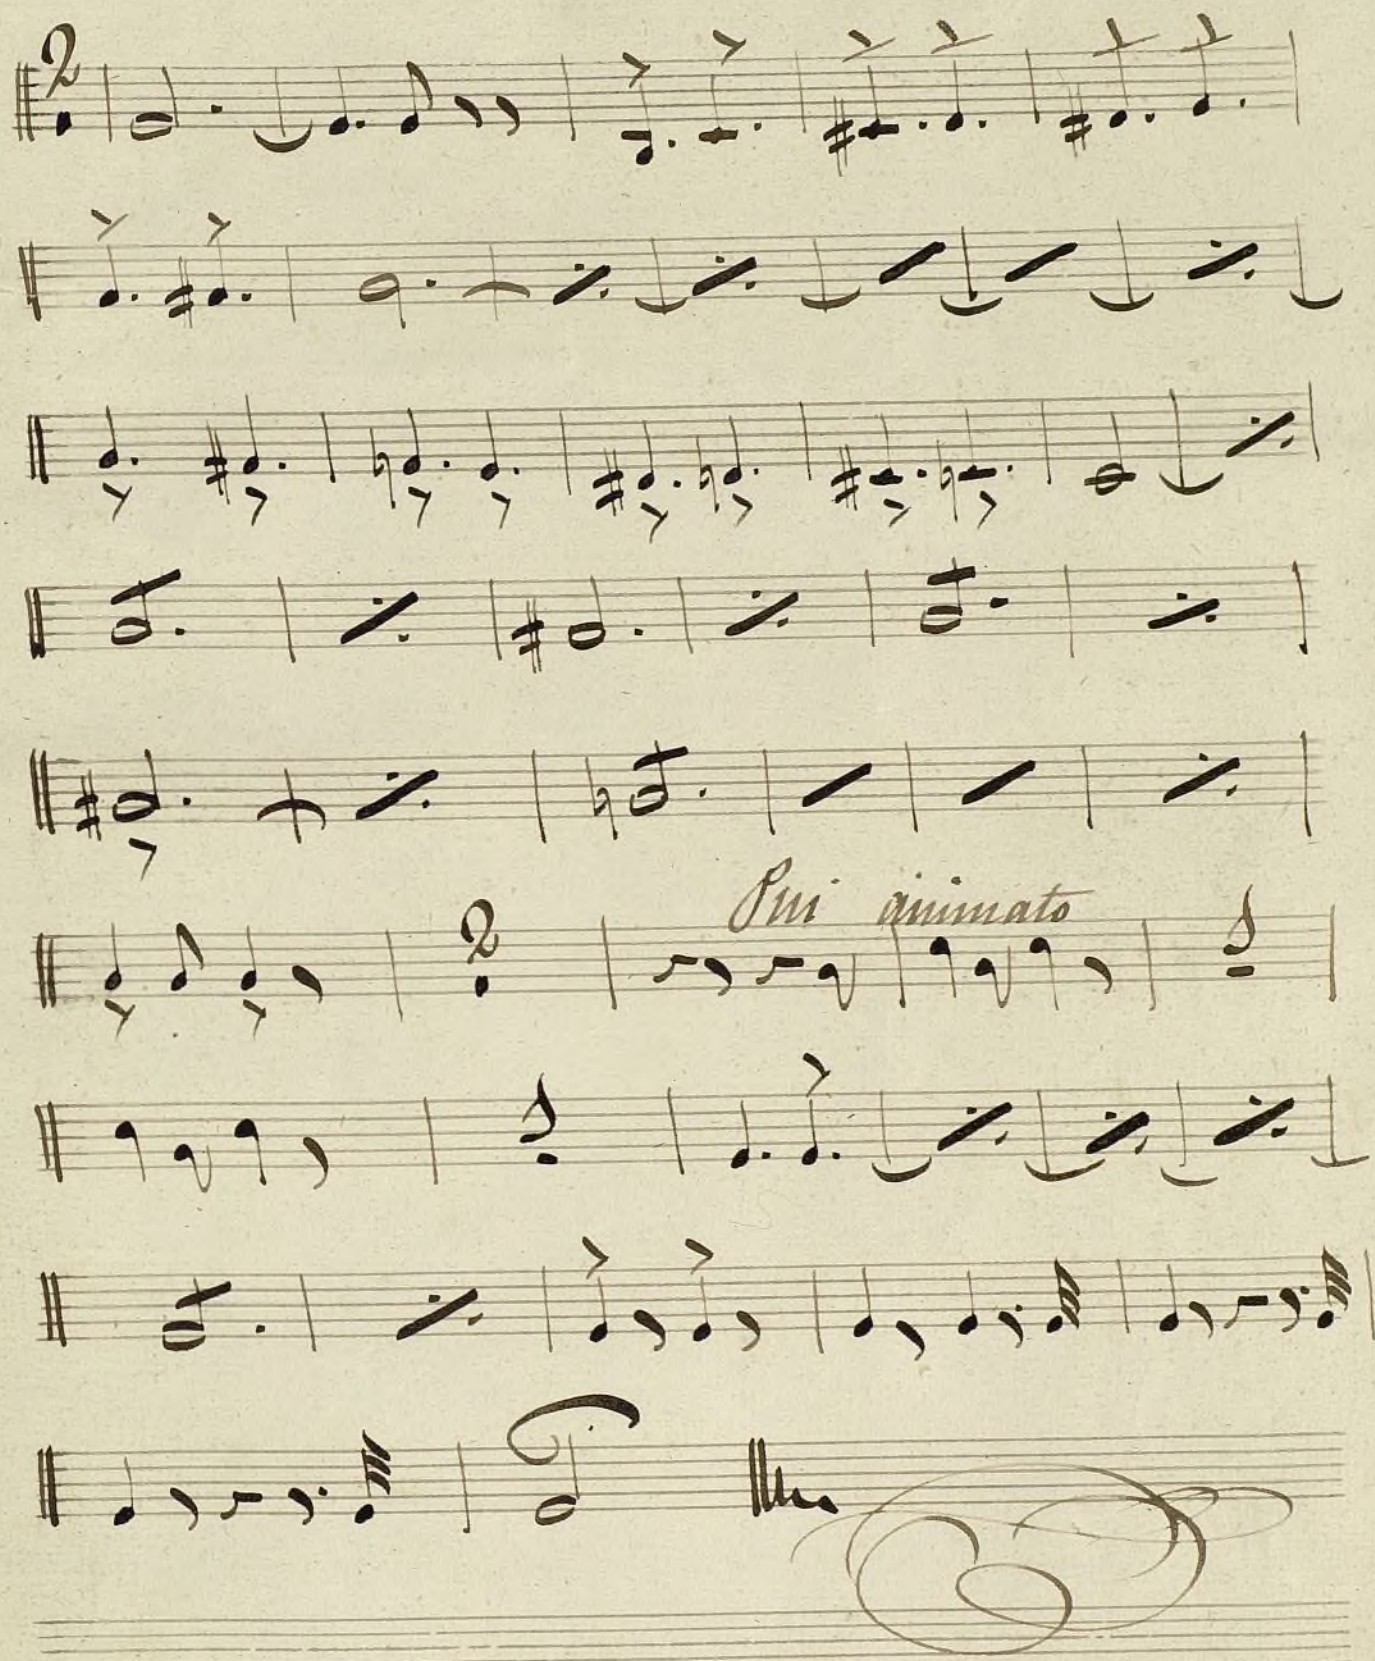 2
2
Piu animato